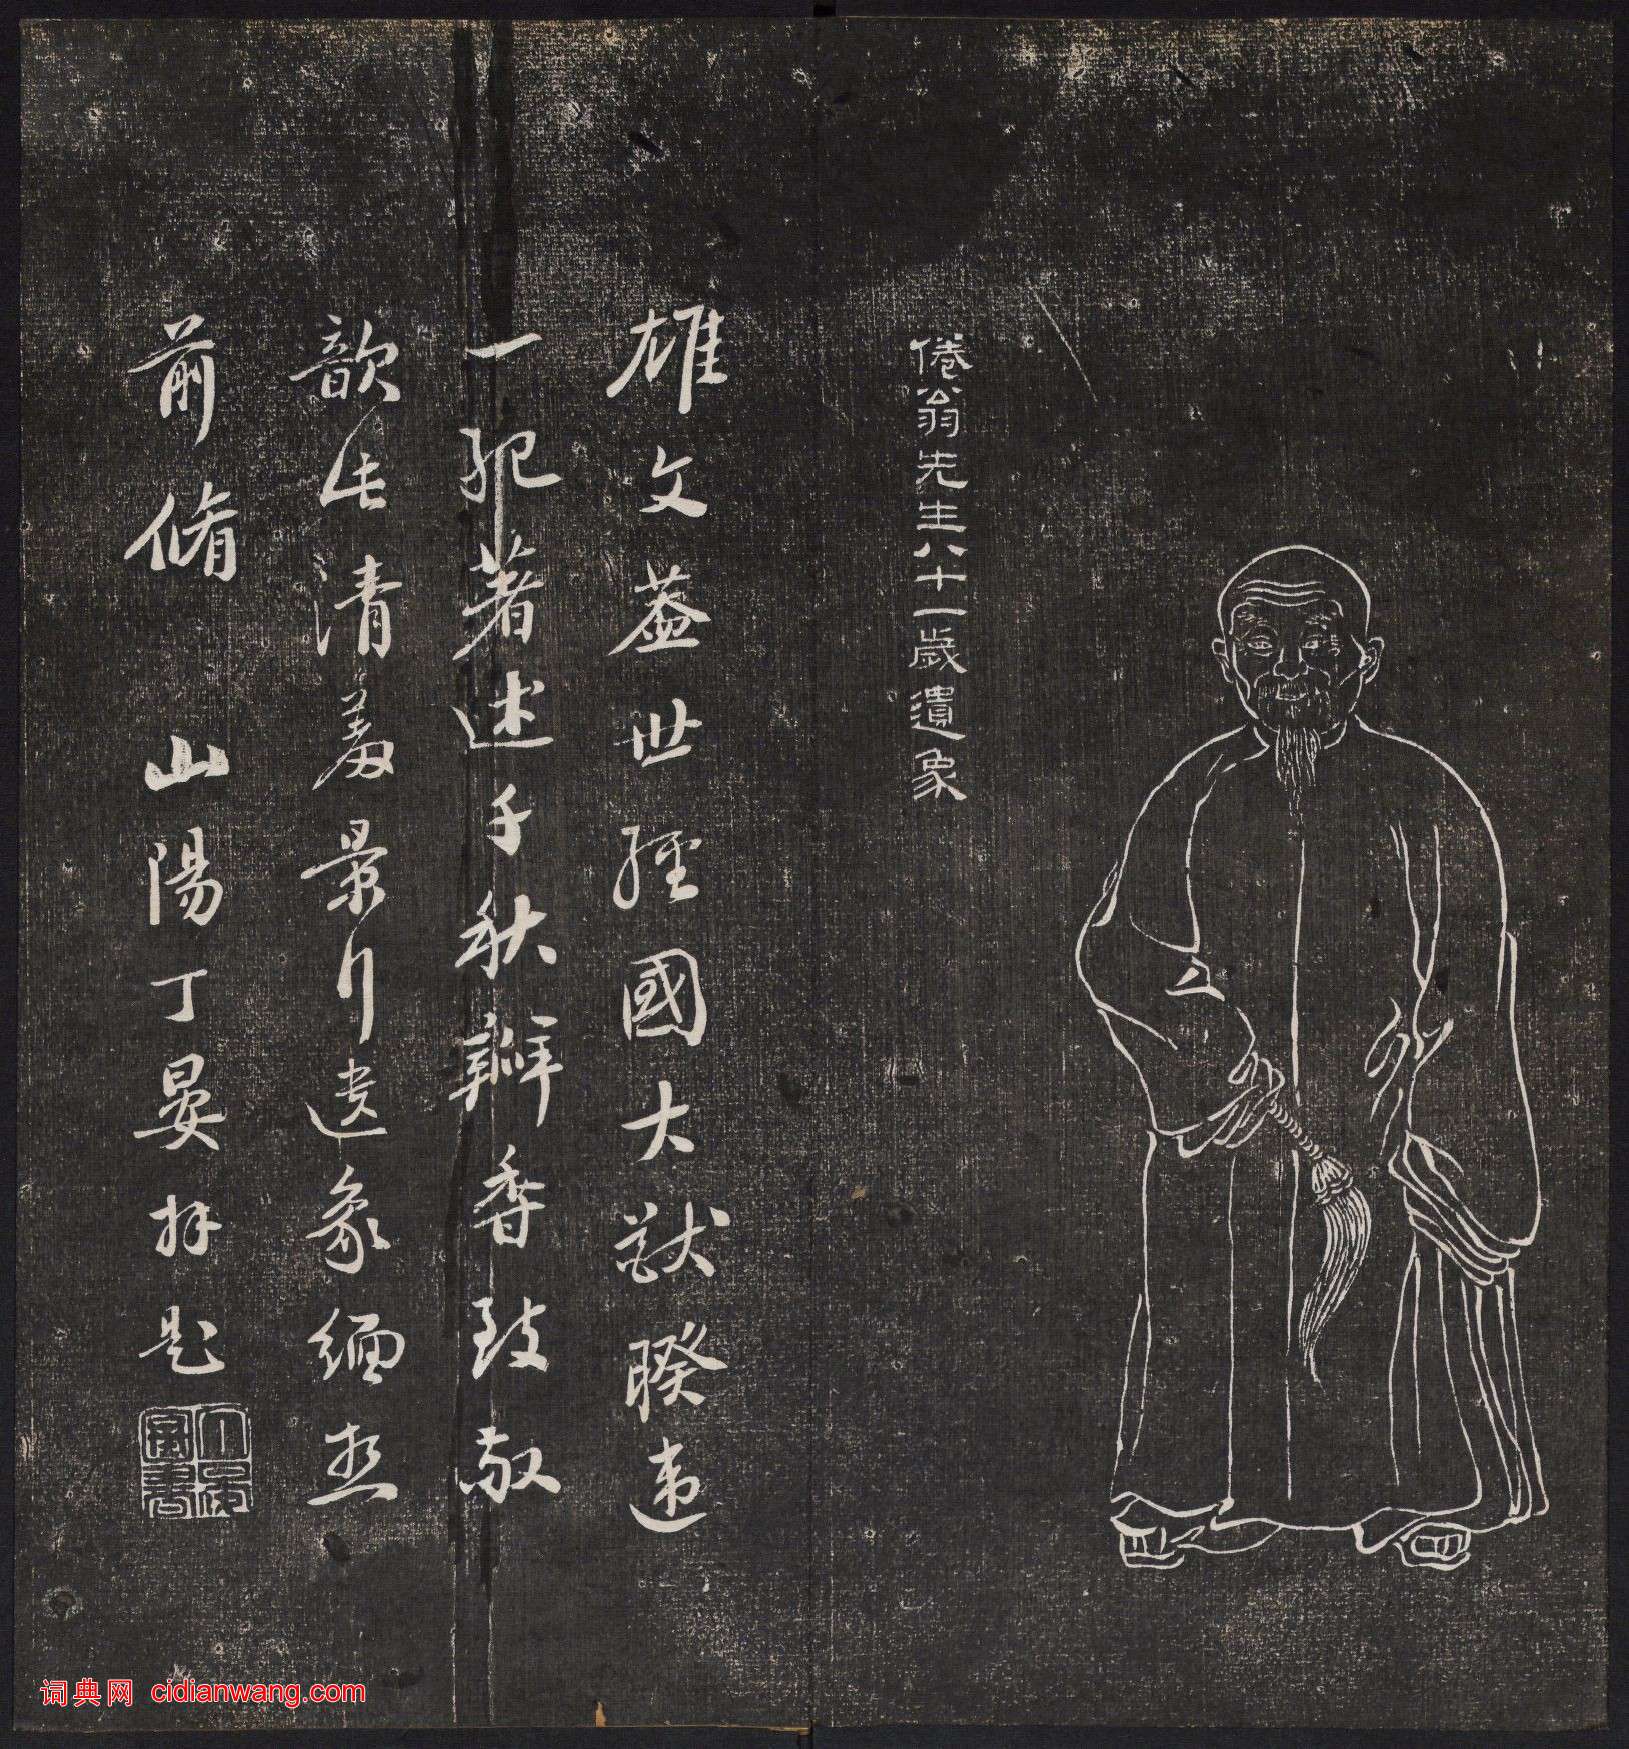 倦翁先生八十一歲遺象
雄文蓋世經國大猷睽違
一紀著述千秋辦香致敬
歆此清芬景行遺象緬想
前脩 山陽丁晏拜題
词典网 cidianwang.com